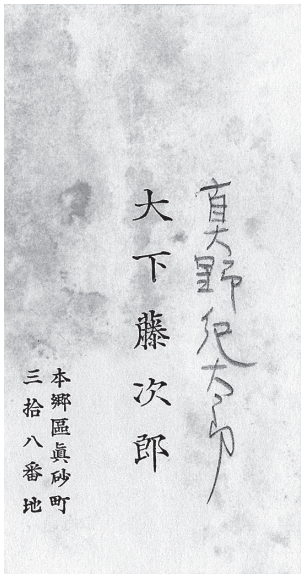 真野紀太郎
大下藤次郎
本郷區眞砂町
三拾八番地